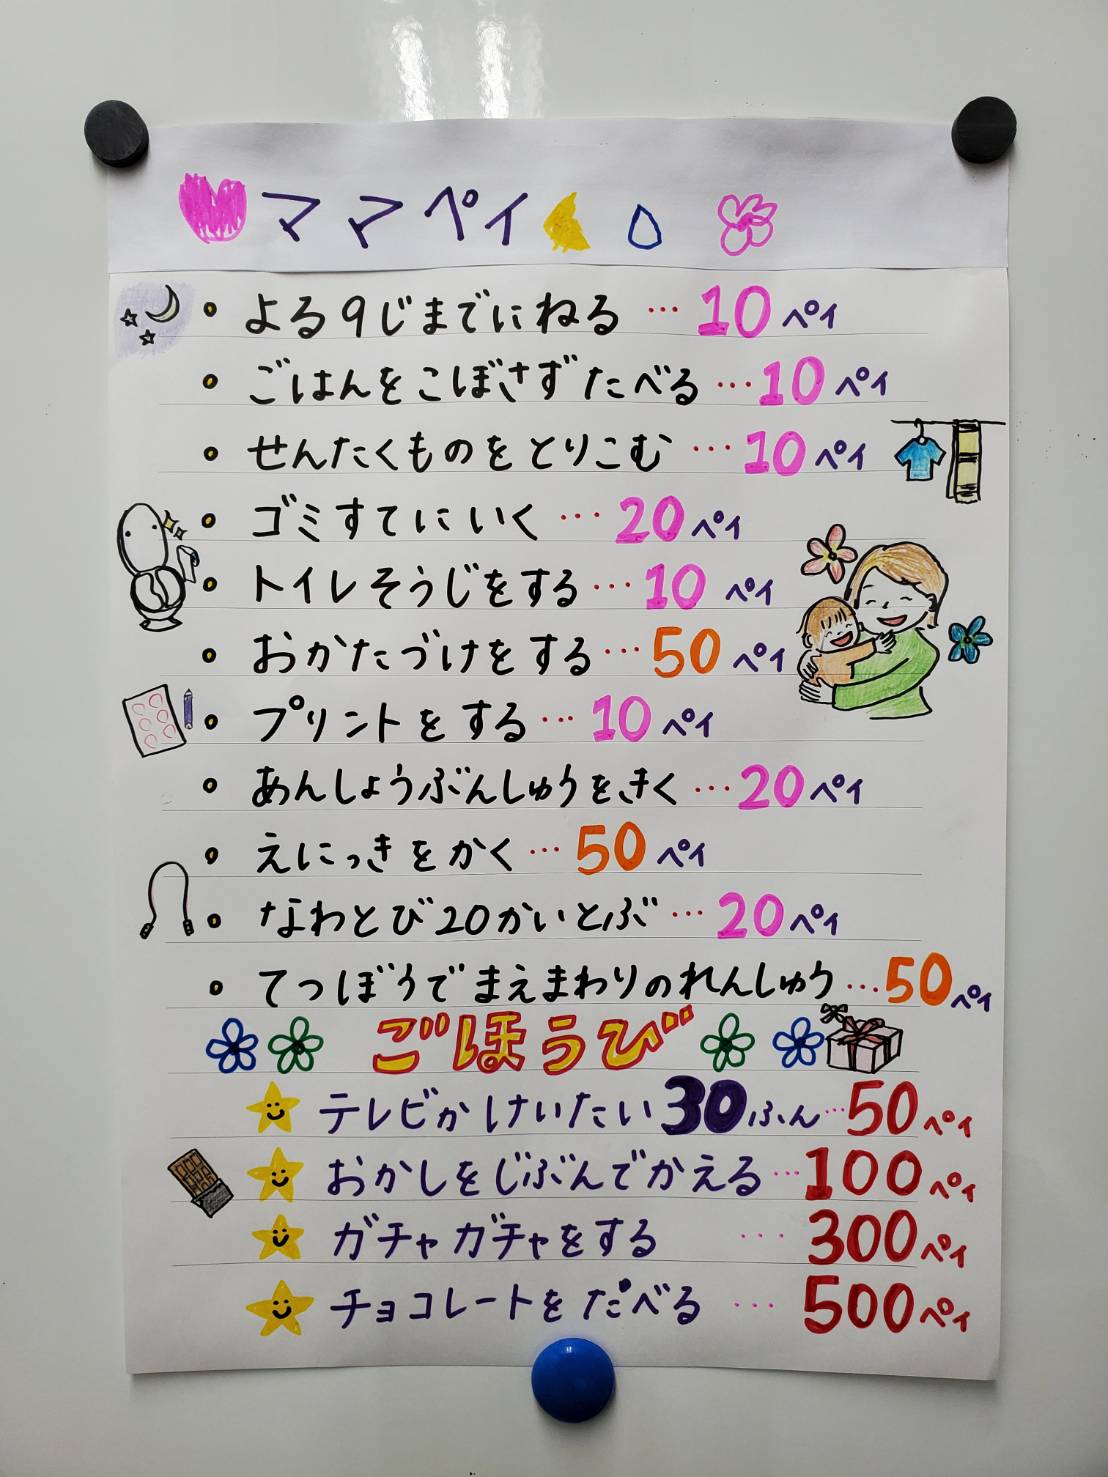 ママペイ
・よる9じまでにねる…10ペイ
・ごはんをこぼさずたべる…10ペイ
・せんたくものをとりこむ…10ペイ
・ゴミすてにいく…20ペイ
・トイレそうじをする…10ペイ
・おかたづけをする…50ペイ
・プリントをする…10ペイ
・あんしょうぶんしゅうをきく…20ペイ
・えにっきをかく…50ペイ
・なわとび20かいとぶ…20ペイ
・てつぼうでまえまわりのれんしゅう…50ペイ
ごほうび
テレビかけいたい30ふん…50ペイ
おかしをじぶんでかえる…100ペイ
ガチャガチャをする…300ペイ
チョコレートをたべる…500ペイ